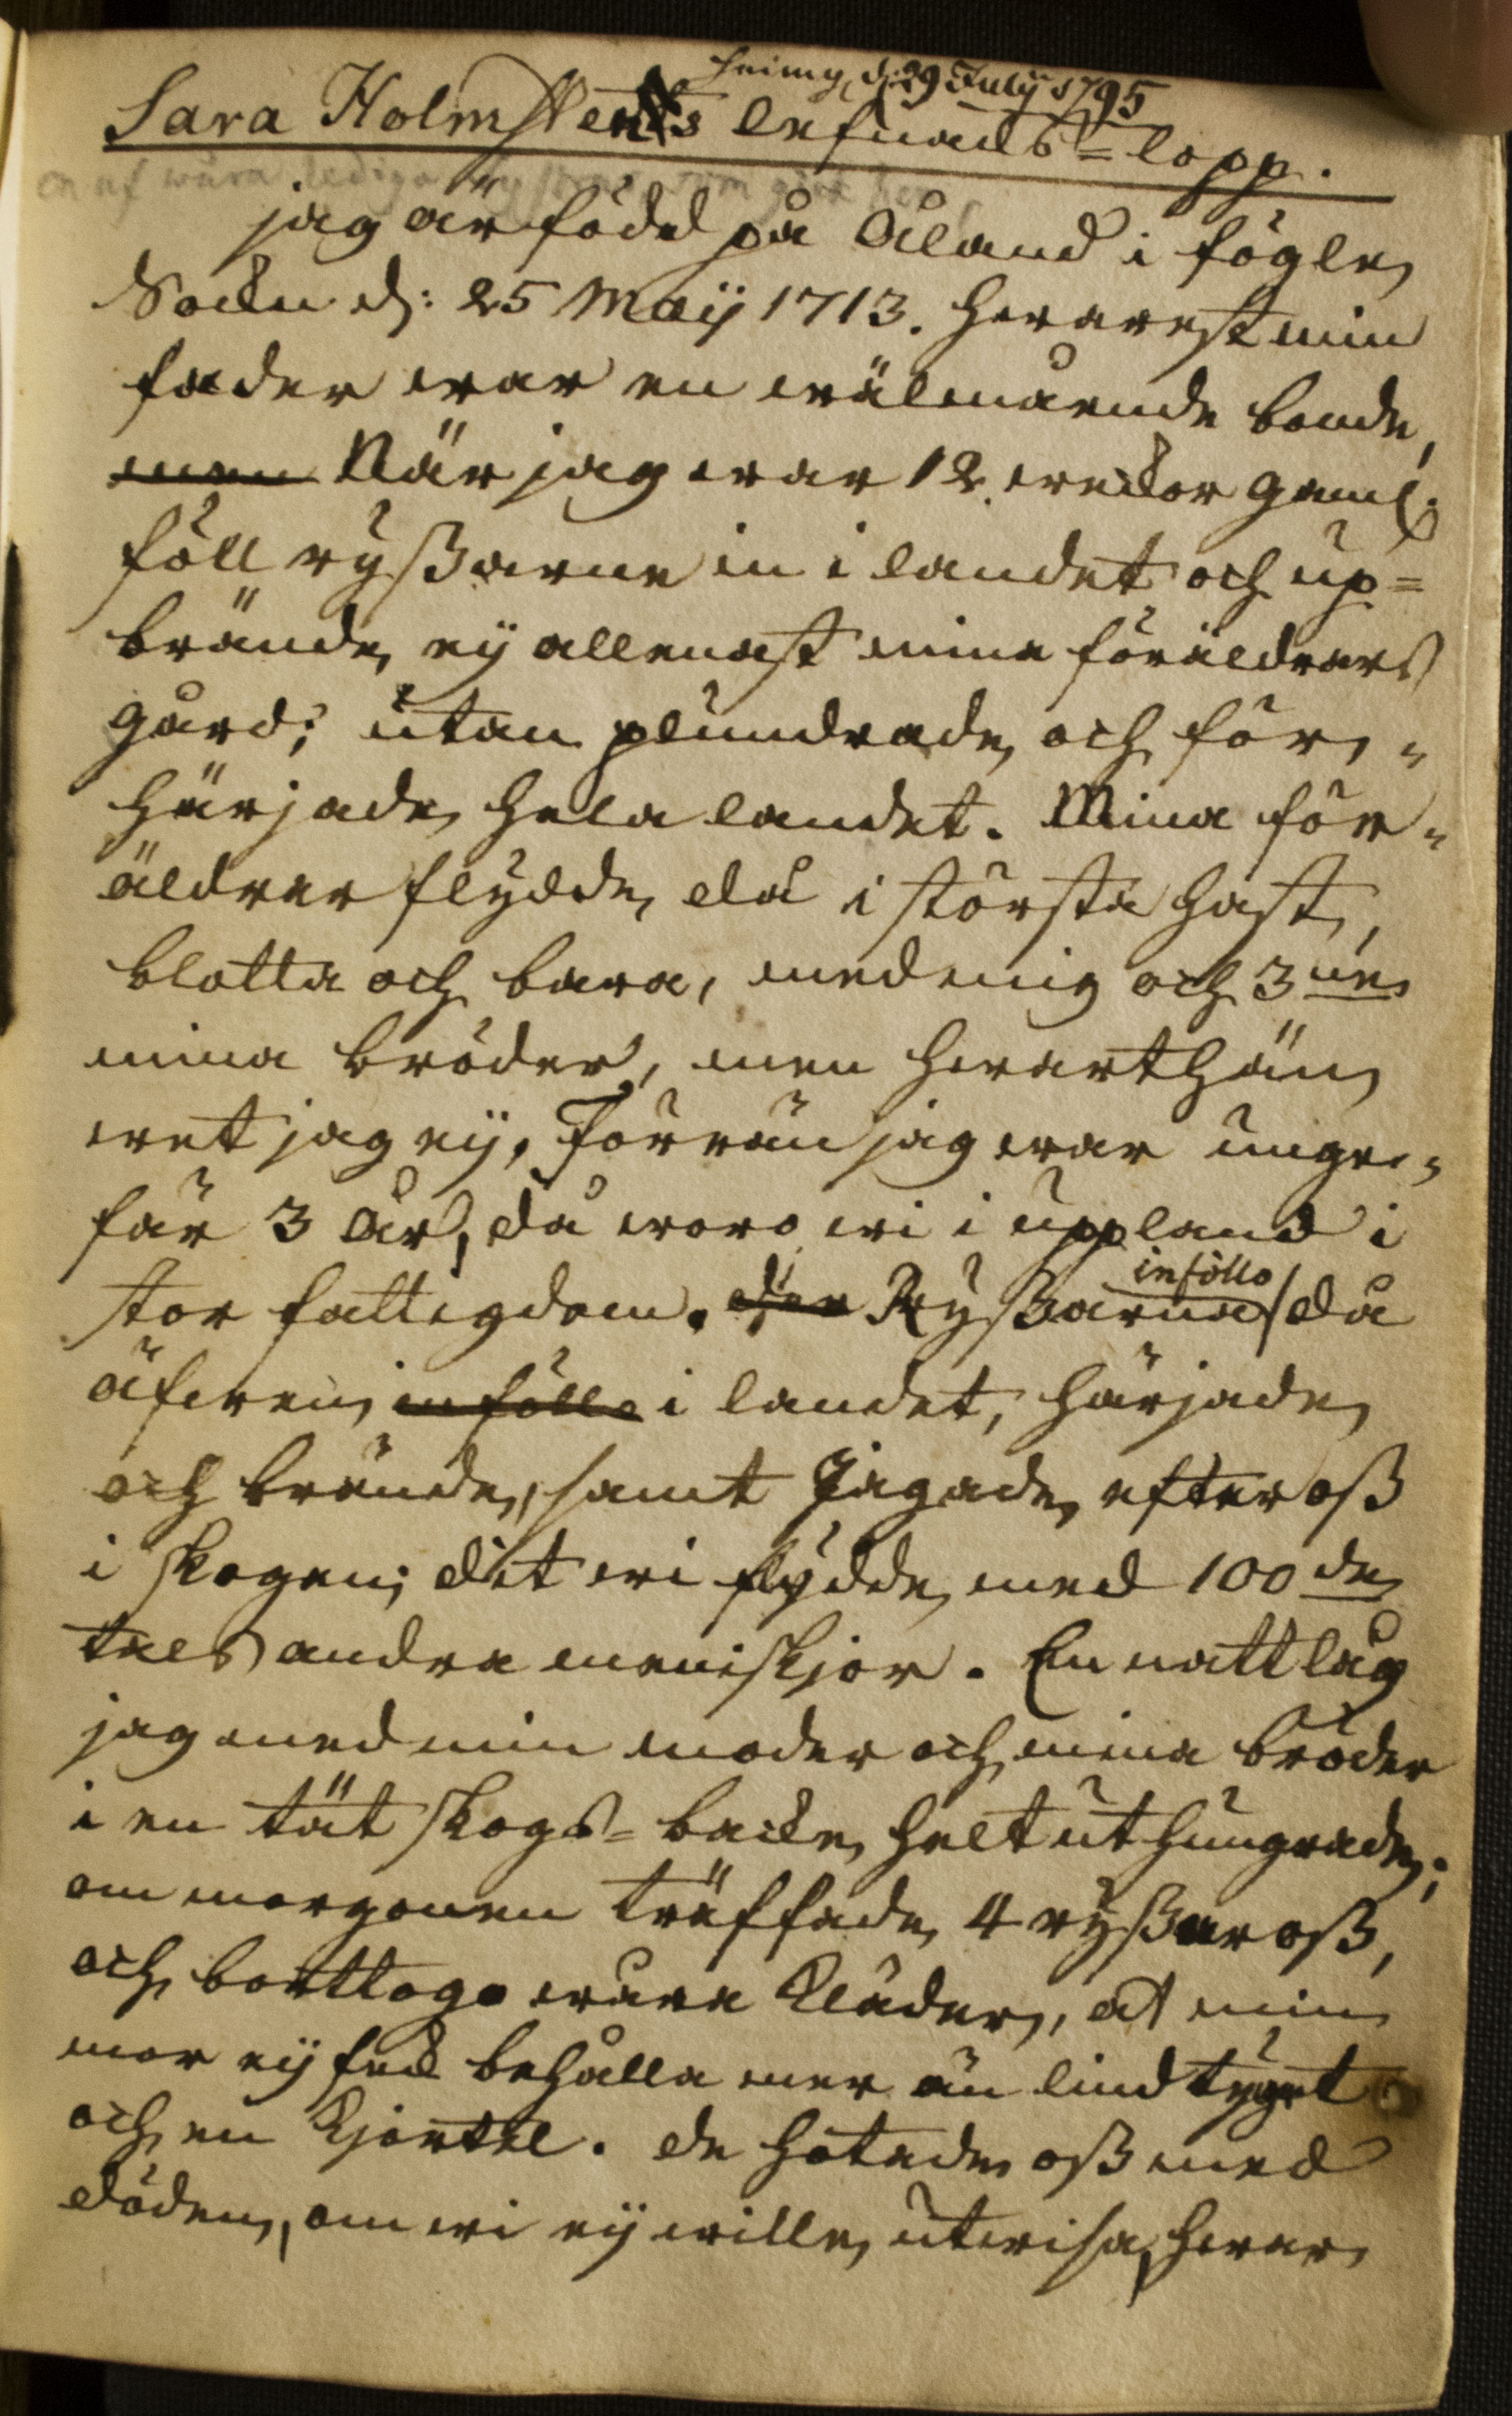 heimg. d: 29 Julij 1795
Sara Holmstens lefnads=lopp.
en af wåra lediga
jag är född på Åland i föglö
Sockn d: 25 Maij 1713. hwarest min
fader war en wälmående bonde,
men När jag war 12. weckor gaml:
föll ryßarne in i landet och up=
brände, ej allenast mina föräldrars
gård; utan plundrade, och för„
härjade hela landet. Mina för„
äldrar flydde, då i största hast,
blotta och bara, med mig och 3 ne
mina bröder, men hwarthän
wet jag ej, Förrän jag war unge„
fär 3 år, då woro wi i uppland i
stor fattigdom. der Ryßarna införllo då
äfwen, inföllo i landet, härjade,
och brände, samt Jagade efter oß
i skogen; dit wi flydde, med 100 de
tals andra meniskjor. En natt låg
jag med min moder och mina bröder
i en tät skogs=backe, helt uthungrade;
om morgonen träffade 4 ryßar oß,
och borttogo wåra kläder, at min
mor ej fick behålla mer än lindtyget
och en kjortel. de hotade oß med
döden, om wi ej wille, utwisa, hwar